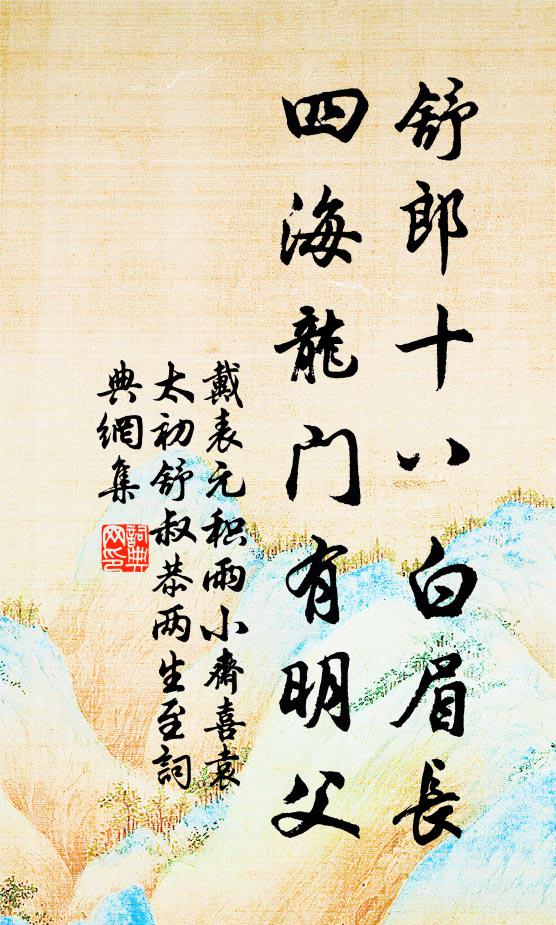 舒郎十八白眉長
四海龍门有明父
戴表元积雨小齋喜袁
太初舒叔恭两生至詞
典網集
詞典网印